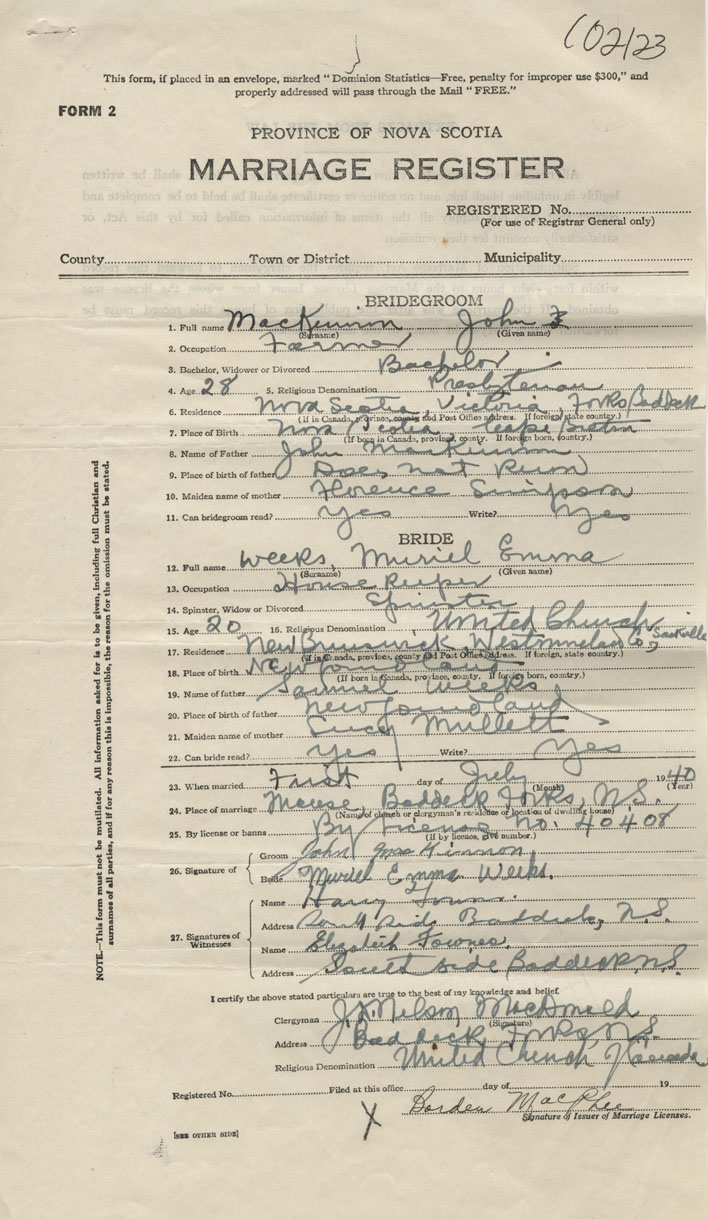 102123
This form, if placed in an envelope, marked "Dominion Statistics—Free, penalty for improper use $300," and
properly addressed will pass through the Mail "FREE."
FORM 2
PROVINCE OF NOVA SCOTIA
MARRIAGE REGISTER
REGISTERED No.
(For use of Registrar General only)
County Town or District Municipality
BRIDEGROOM
1. Full name MacKinnon John
(Surname) (Given name)
2. Occupation Farmer
3. Bachelor, Widower or Divorced Bachelor
4. Age 28 5. Religious Denomination Presbyterian
6. Residence Nova Scotia, Victoria, Forks Baddeck
(If in Canada, province, county and Post Office address. If foreign, state country.)
7. Place of Birth Nova Scotia Cape Breton
(If born in Canada, province, county. If foreign born, country.)
8. Name of Father John MacKinnon
9. Place of birth of father Does not know
10. Maiden name of mother Florence Simpson
11. Can bridegroom read? Yes Write? Yes
BRIDE
12. Full name Weeks, Muriel Emma
(Surname) (Given name)
13. Occupation House Keeper
14. Spinster, Widow or Divorced Spinster
15. Age 20 16. Religious Denomination United Church
17. Residence New Brunswick, Westmoreland Co., Sackville
(If in Canada, province, county and Post Office address. If foreign, state country.)
18. Place of birth Newfoundland
(If born in Canada, province, county. If foreign born, country.)
19. Name of father Samuel Weeks
20. Place of birth of father Newfoundland
21. Maiden name of mother Lucy Mullett
22. Can bride read? Yes Write? Yes
23. When married First day of July 1940
(Month) (Year)
24. Place of marriage Manse, Baddeck Forks, N.S.
(Name of church or clergyman's residence or location of dwelling house)
25. By license or banns By License No. 40408
(If by licence, give number.)
26. Signature of
Groom John MacKinnon
Bride Muriel Emma Weeks.
27. Signatures of Witnesses
Name Harry
Address Side Baddeck, N.S.
Name Elizabeth Fownes
Address South side Baddeck N.S.
I certify the above stated particulars are true to the best of my knowledge and belief.
Clergyman Nelson MacDonald
(Signature)
Address Baddeck Forks, N.S.
Religious Denomination United Church of Canada
Registered No. Filed at this office day of 19
X Borden MacPhee
Signature of Issuer of Marriage Licenses.
[SEE OTHER SIDE]
NOTE.—This form must not be mutilated. All information asked for is to be given, including full Christian and
surnames of all parties, and if for any reason this is impossible, the reason for the omission must be stated.